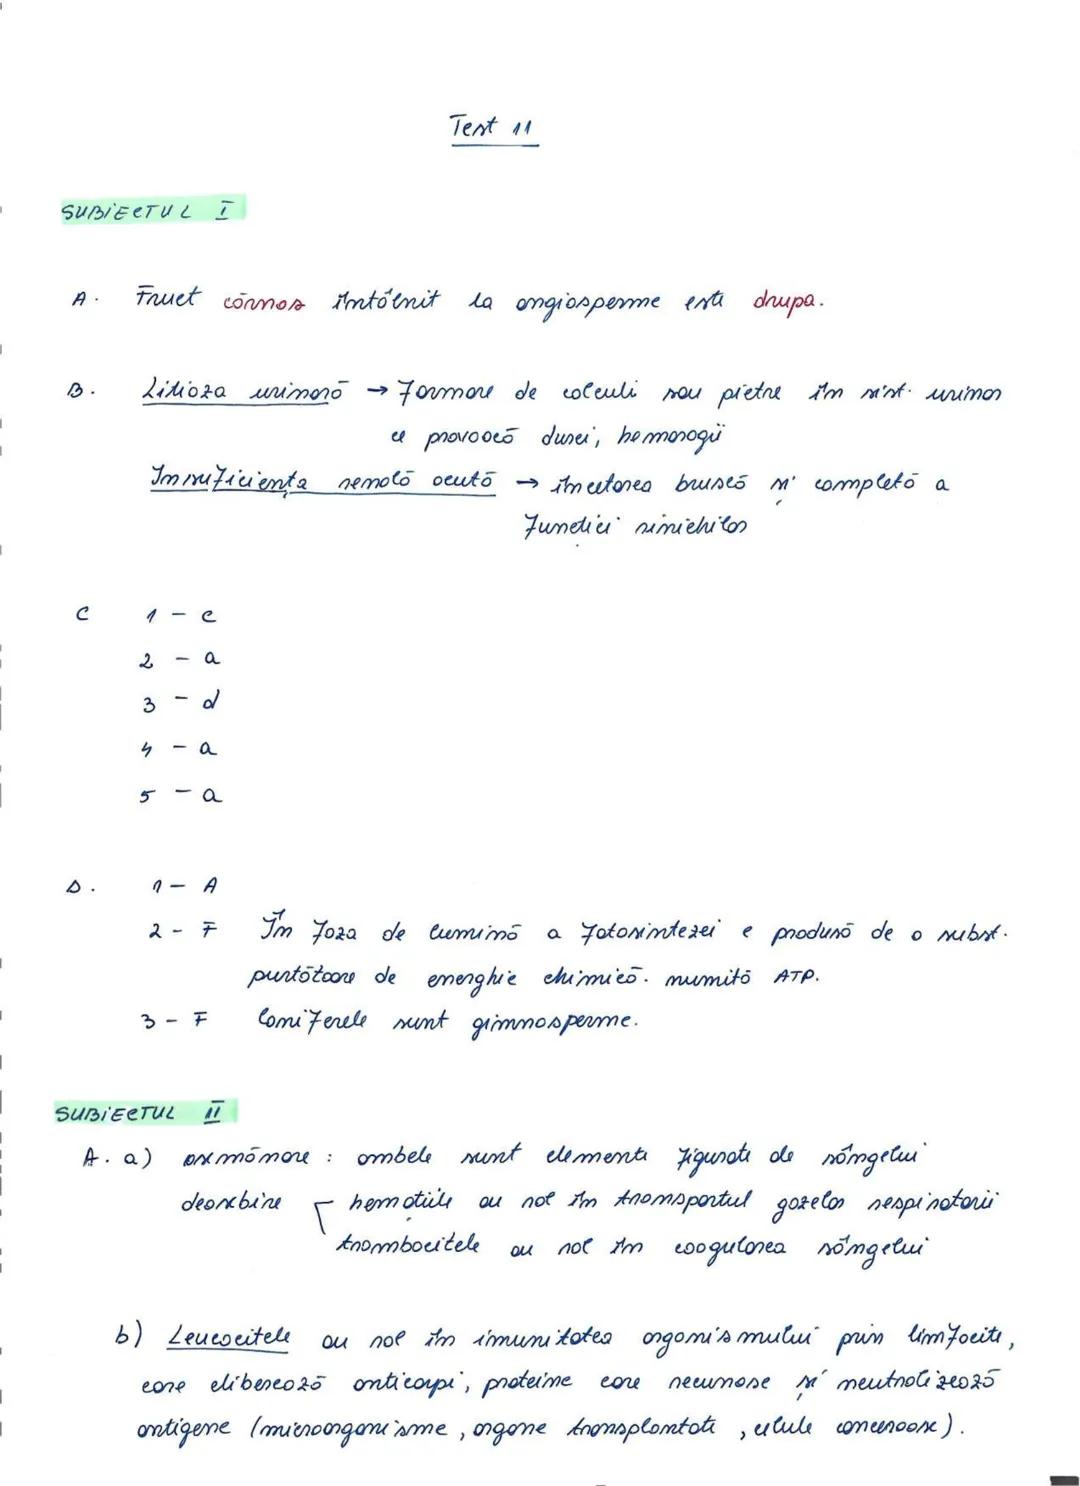 Test 11
SUBIECTUL I
A. Fruct cărnos întâlnit la angiosperme este drupa.
B. Litiaza urinară → formare de calculi sau pietre în sist. urinar
ce provoacă dureri, hemoragii
Insuficiența renală acută → încetarea bruscă și completă a
funcției rinichilor
C 1 - c
2 - a
3 - d
4 - a
5 - a
D. 1 - A
2 - F În faza de lumină a fotosintezei e produsă de o subst.
purtătoare de energhie chimică. numită ATP.
3 - F Coniferele sunt gimnosperme.
SUBIECTUL II
A. a) asemănare : ambele sunt elemente figurate ale sângelui
deosebire hematiile au rol în transportul gazelor respiratorii
trombocitele au rol în coagularea sângelui
b) Leucocitele au rol în imunitatea organismului prin limfocite,
care eliberează anticorpi, proteine care recunosc și neutralizează
antigene (microorganisme, organe transplantate, celule canceroase).